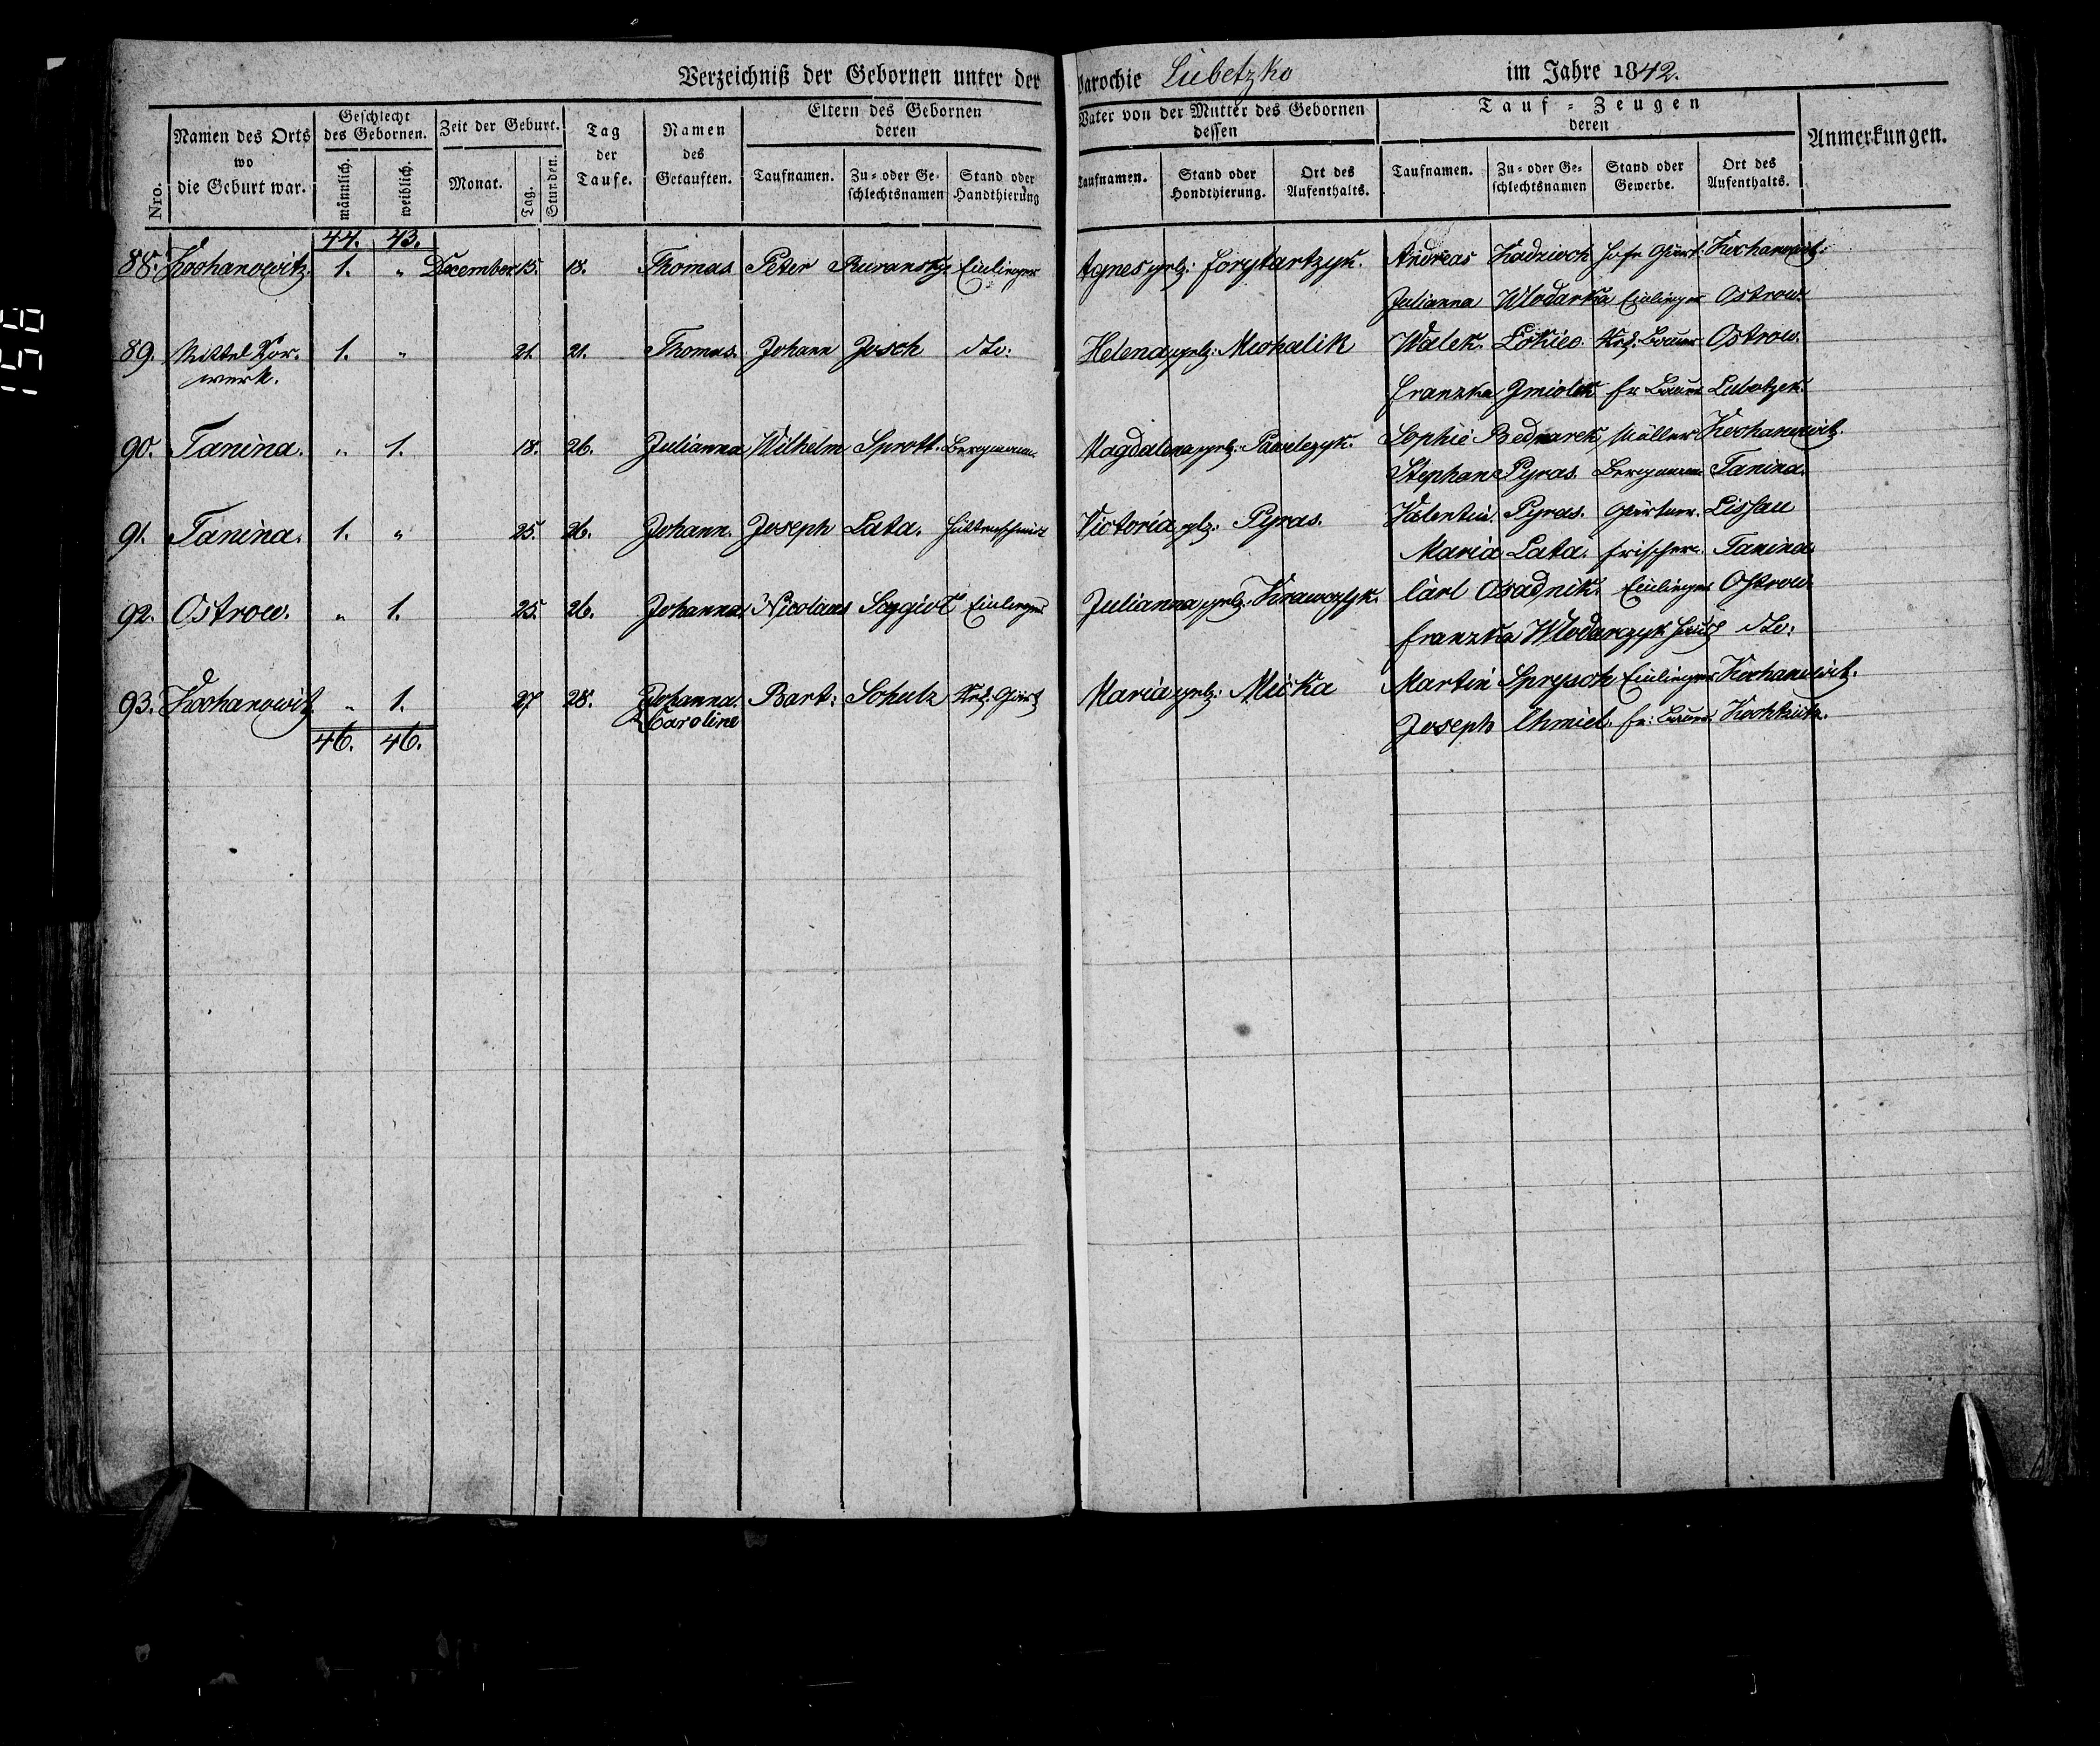 Verzeichniß der Gebornen unter der Parochie Lubetzko im Jahre 1842.
Nro. Namen des Orts wo die Geburt war. Geschlecht des Gebornen. männlich. weiblich. Zeit der Geburt. Monat. Tag. Stunden. Tag der Taufe. Namen des Getauften. Eltern des Gebornen deren Taufnamen. Zu- oder Geschlechtsnamen Stand oder Handthierung
Vater von der Mutter des Gebornen dessen Taufnamen. Stand oder Hondthierung. Ort des Aufenthalts. Tauf-Zeugen deren Taufnamen. Zu- oder Geschlechtsnamen Stand oder Gewerbe. Ort des Aufenthalts. Anmerkungen.
44. 43.
88. Kochanowitz. 1. " December 15. 18. Thomas Peter Einlieger Agnes geb: Andreas Kadzioch Hofe Gärt: Kochanowitz
Julianna Wlodarka Einlieger Ostrow.
89. Mittel Vor- 1. " 21. 21. Thomas. Johann Josch dto: Helena geb: Mochalik Walek. Lokiec. Bauer Ostrow.
werk.
Franzka Zmiolek Fr Bauer Lubetzek.
90. Tanina. " 1. 18. 26. Julianna Wilhelm Sprott. Bergmann. Magdalena geb: Pawelczyk. Sophie Bednarek, Müller Kochanowitz.
Stephan Pyras. Bergmann Tanina.
91. Tanina. 1. " 25. 26. Johann. Joseph Lata. Hüttenschmied Victoria geb: Pyras. Valentin. Pyras. Gärtner. Lissau
Maria Lata. Frischer. Tanina.
92. Ostrow. " 1. 25. 26. Johanna. Nicolaus Einlieger Julianna geb: Krawczyk. Carl Osadnik. Einlieger Ostrow.
Franzka Wlodarczyk dto:
93. Kochanowitz " 1. 27 28. Johanna. Bart: Schulz Gärt Maria geb: Micka Martin Sprysch Einlieger Kochanowitz.
Caroline
46. 46.
Joseph Chmiel. Fr: Bauer. Kochtzitz.